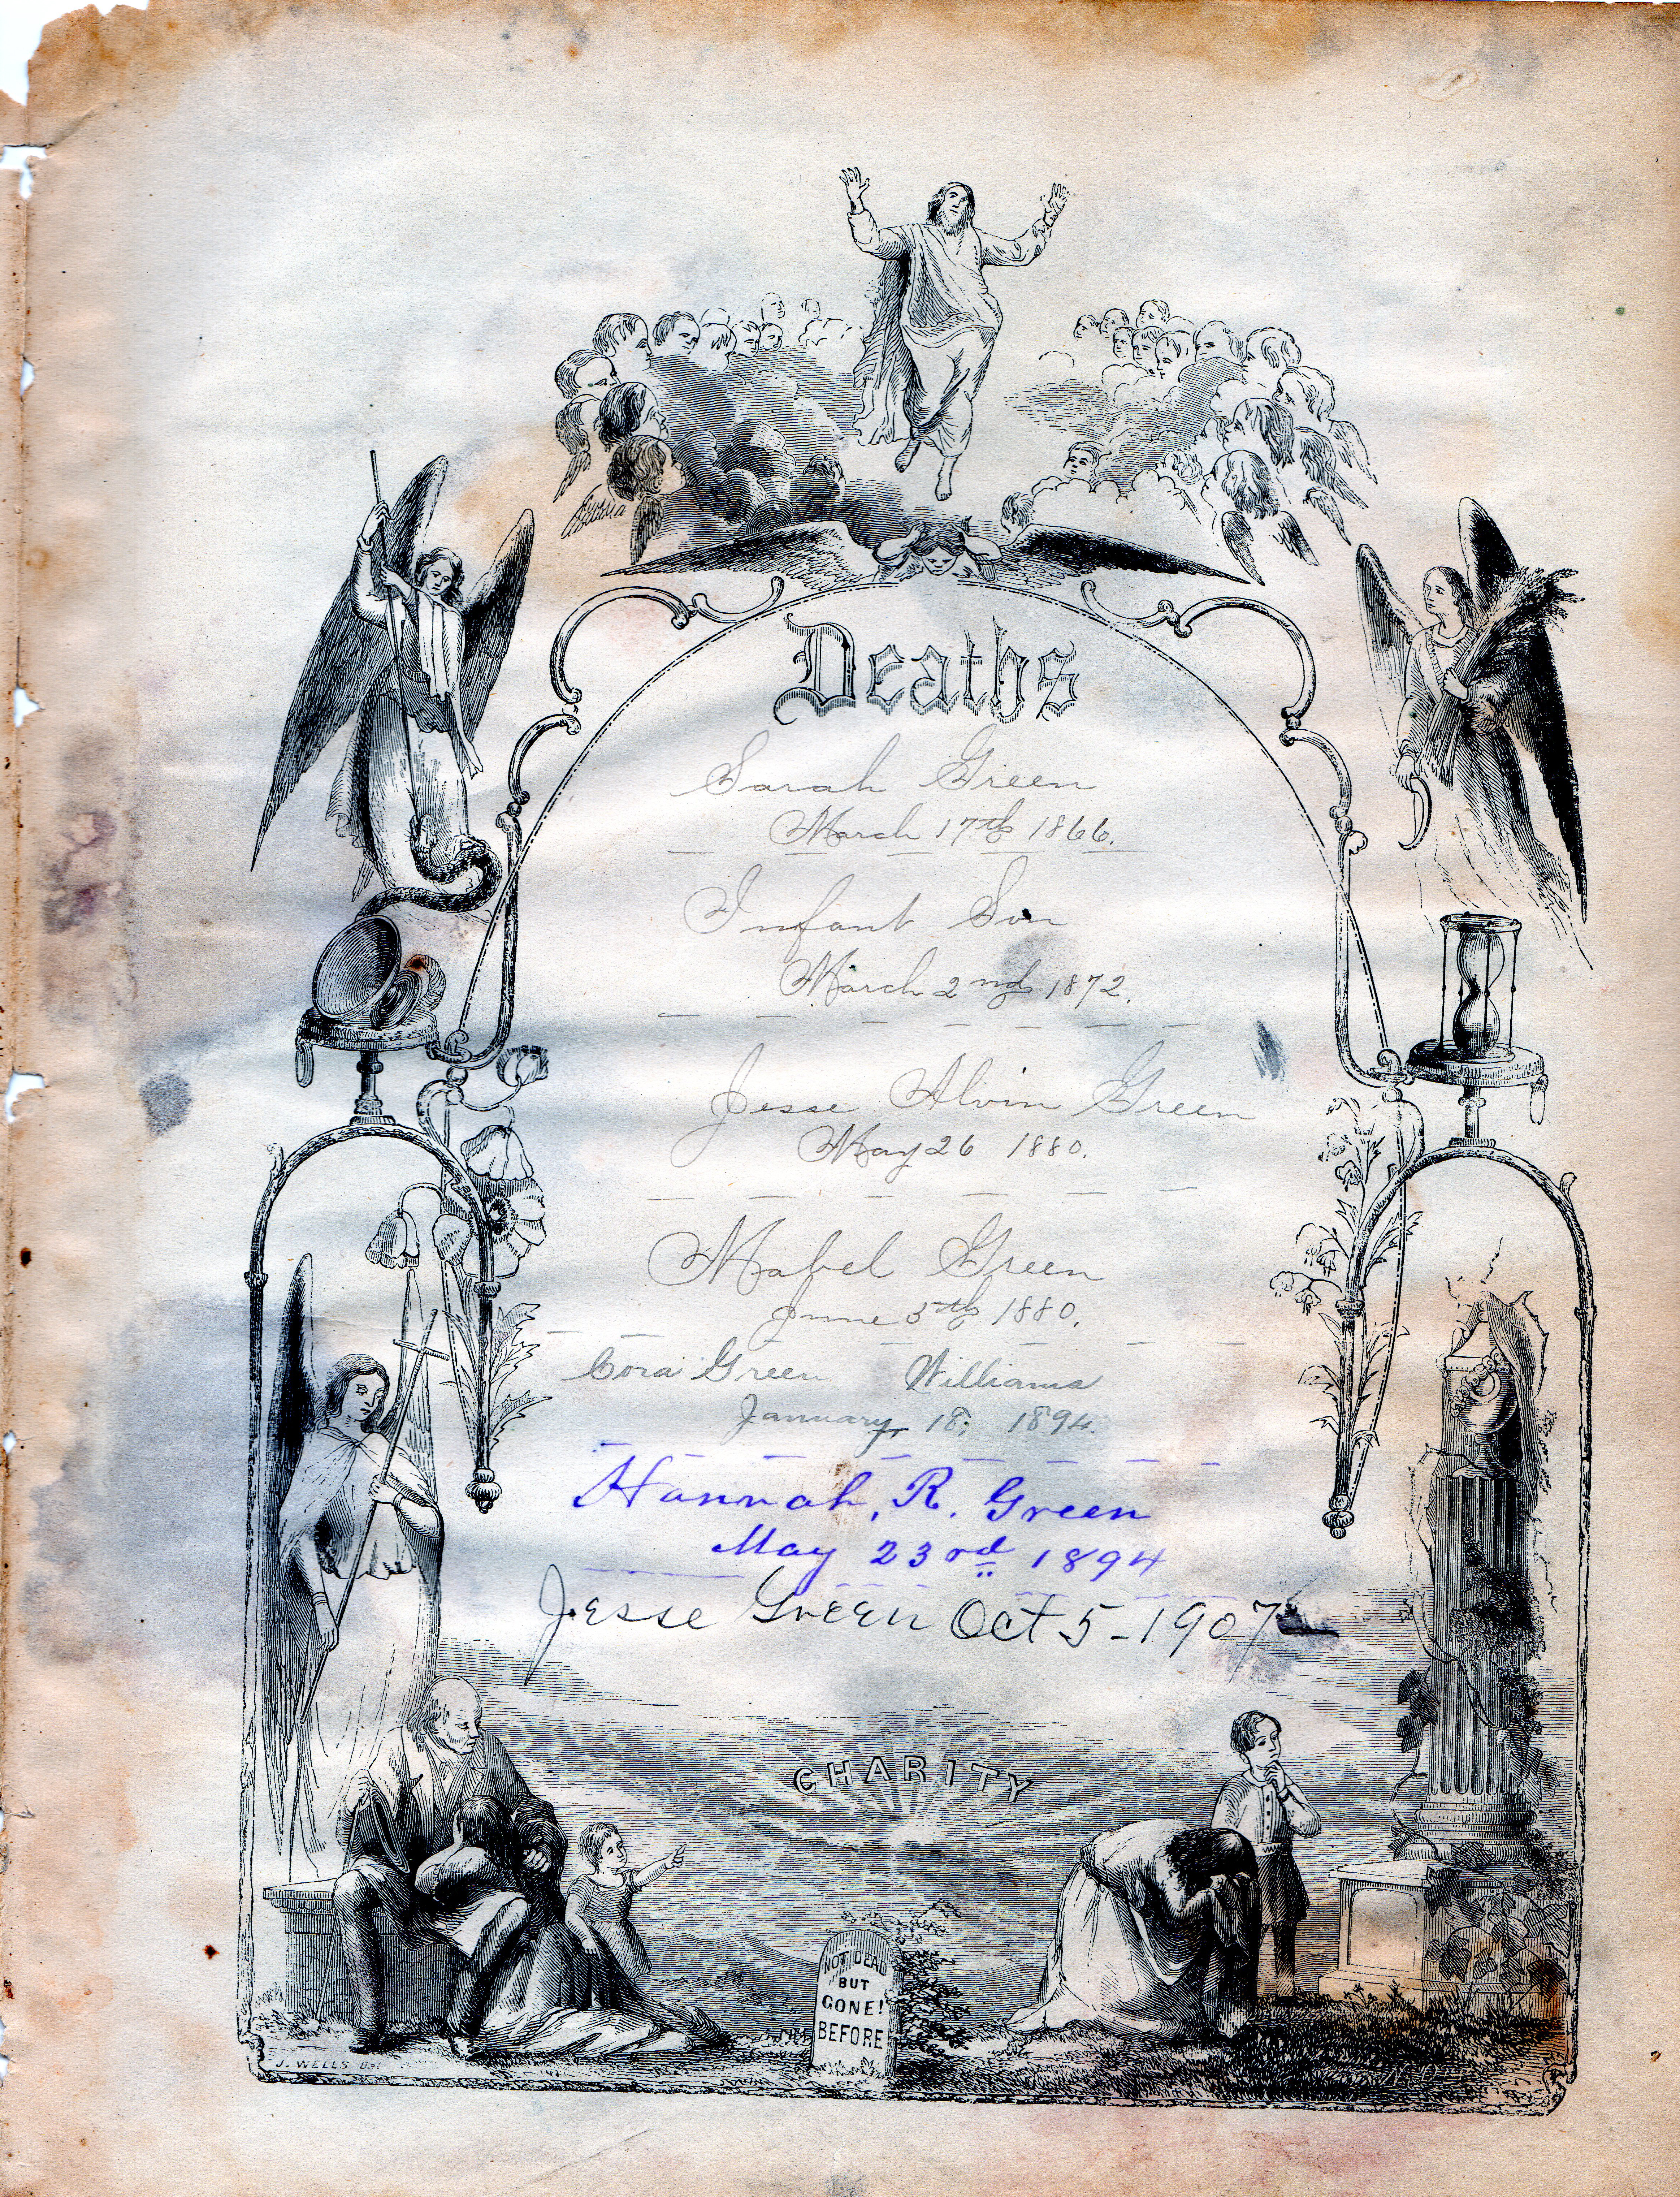 Deaths
Sarah Green
March 17th 1866.
Infant Son
March 2nd 1872.
Jesse Alvin Green
May 26 1880.
Mabel Green
June 5th 1880.
Cora Green Williams
January, 18; 1894.
Hannah, R. Green
May 23rd 1894
Jesse Green Oct 5-1907
CHARITY
NOT DEAD
BUT
GONE!
BEFORE
J. WELLS